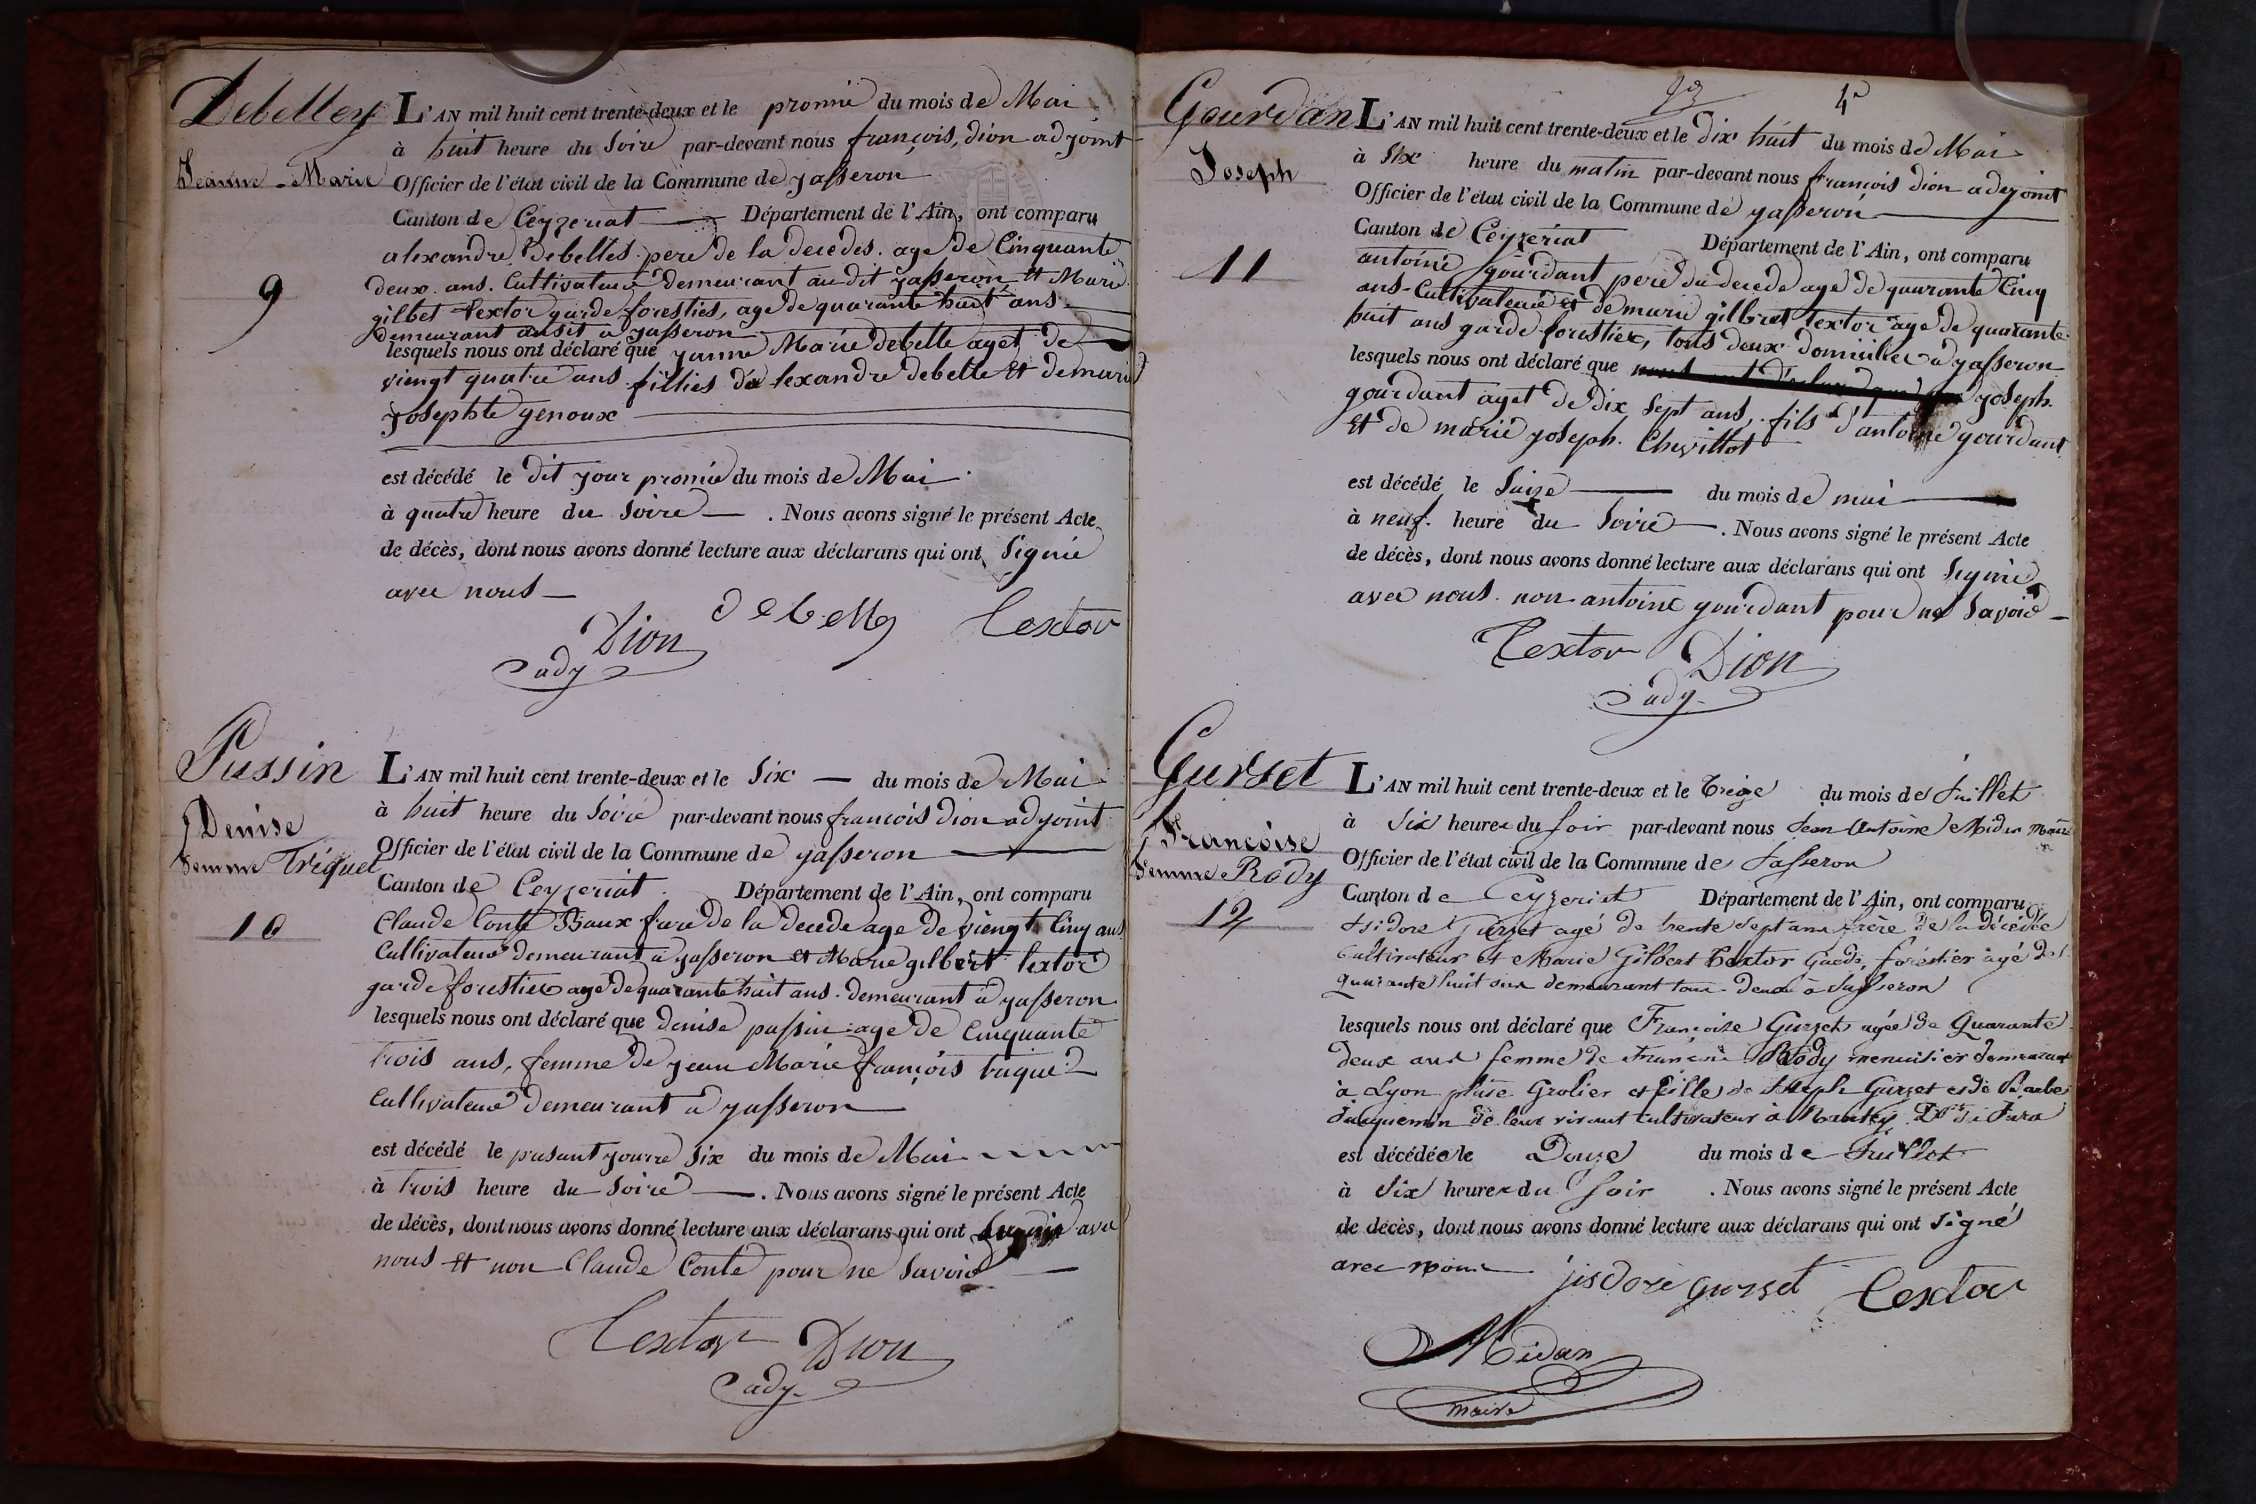 Debelley
Jeanne-Marie
9
L'AN mil huit cent trente-deux et le promié du mois de Mai
à huit heure du Soire par-devant nous françois, dion adjoint
Officier de l'état civil de la Commune de yasseron
Canton de Ceyzeriat Département de l'Ain, ont comparu
alexandre Debelles pere de la decedes. age de Cinquante
deux. ans. Cultivateure demeurant audit yasseron et Marie
gilbet textor garde foresties, age de quarante huit ans
demeurant ausit a yasseron
lesquels nous ont déclaré que yanne Marie debelle aget de
viengt quatre ans fillies d'alexandre debelle et de marie
yosephte genoux
est décédé le dit your promie du mois de Mai
à quatre heure du Soire. Nous avons signé le présent Acte
de décès, dont nous avons donné lecture aux déclarans qui ont Signie
avec nous
Debelley Textor
Dion
ady
Pussin
Denise
femme Triquet
10
L'AN mil huit cent trente-deux et le Six du mois de Mai
à huit heure du Soire par-devant nous francois dion adjoint
Officier de l'état civil de la Commune de yasseron
Canton de Ceyzeriat. Département de l'Ain, ont comparu
Claude Conte Baux frere de la decede age de viengt Cinq ans
Cultivateure demeurant a yasseron et Marie gilbert textor
garde forestiee age de quarante huit ans. demeurant a yasseron
lesquels nous ont déclaré que denise pussin age de Cinquante
trois ans, femme de jean Marie françois trique
Cultivateure demeurant a yasseron
est décédé le presant yourre Six du mois de Mai
à trois heure du Soire. Nous avons signé le présent Acte
de décès, dont nous avons donné lecture aux déclarans qui ont avec
nous et non Claude Conte pour ne Savoir
Textor Dion
ady
4
Gourdan
Joseph
11
L'AN mil huit cent trente-deux et le dix huit du mois de Mai
à Six heure du matin par-devant nous françois dion adjoint
Officier de l'état civil de la Commune de yasseron
Canton de Ceyzeriat Département de l'Ain, ont comparu
antoine gourdant pere du decede age de quarante Cinq
ans-Cultivateure et de marie gilbret textor age de quarante
huit ans garde forestier, tous deux domicilies a yasseron
lesquels nous ont déclaré que yoseph.
gourdant aget de dix Sept ans, fils d'antoine gourdant
et de marie yoseph. Chevillot
est décédé le Saize du mois de mai
à neuf. heure du Soire. Nous avons signé le présent Acte
de décès, dont nous avons donné lecture aux déclarans qui ont Signie
avec nous. non antoine gourdant pour ne Savoir
Textor Dion
ady
Gurset
Françoise
femme Rody
12
L'AN mil huit cent trente-deux et le treize du mois de Juillet
à Six heures du Soir par-devant nous Jean Antoine Midan Maire
Officier de l'état civil de la Commune de Jasseron
Canton de Ceyzeriat Département de l'Ain, ont comparu
Isidore Gurzet agé de trente Sept ans frère de la décédée
Cultivateur et Marie Gilbert Textor Garde forestier agé de
quarante huit ans demeurant tous deux à Jasseron
lesquels nous ont déclaré que Françoise Gurzet agée de Quarante
deux ans femme de François Rody menuisier demeurant
à Lyon place Grolier et fille de Joseph Gurzet et de Barbe
Juquemin de leur vivant Cultivateur à Nantey Dt du Jura
est décédée le Douze du mois de Juillet
à Six heures du Soir. Nous avons signé le présent Acte
de décès, dont nous avons donné lecture aux déclarans qui ont Signé
avec nous
jisdore gurset Textor
Midan
maire